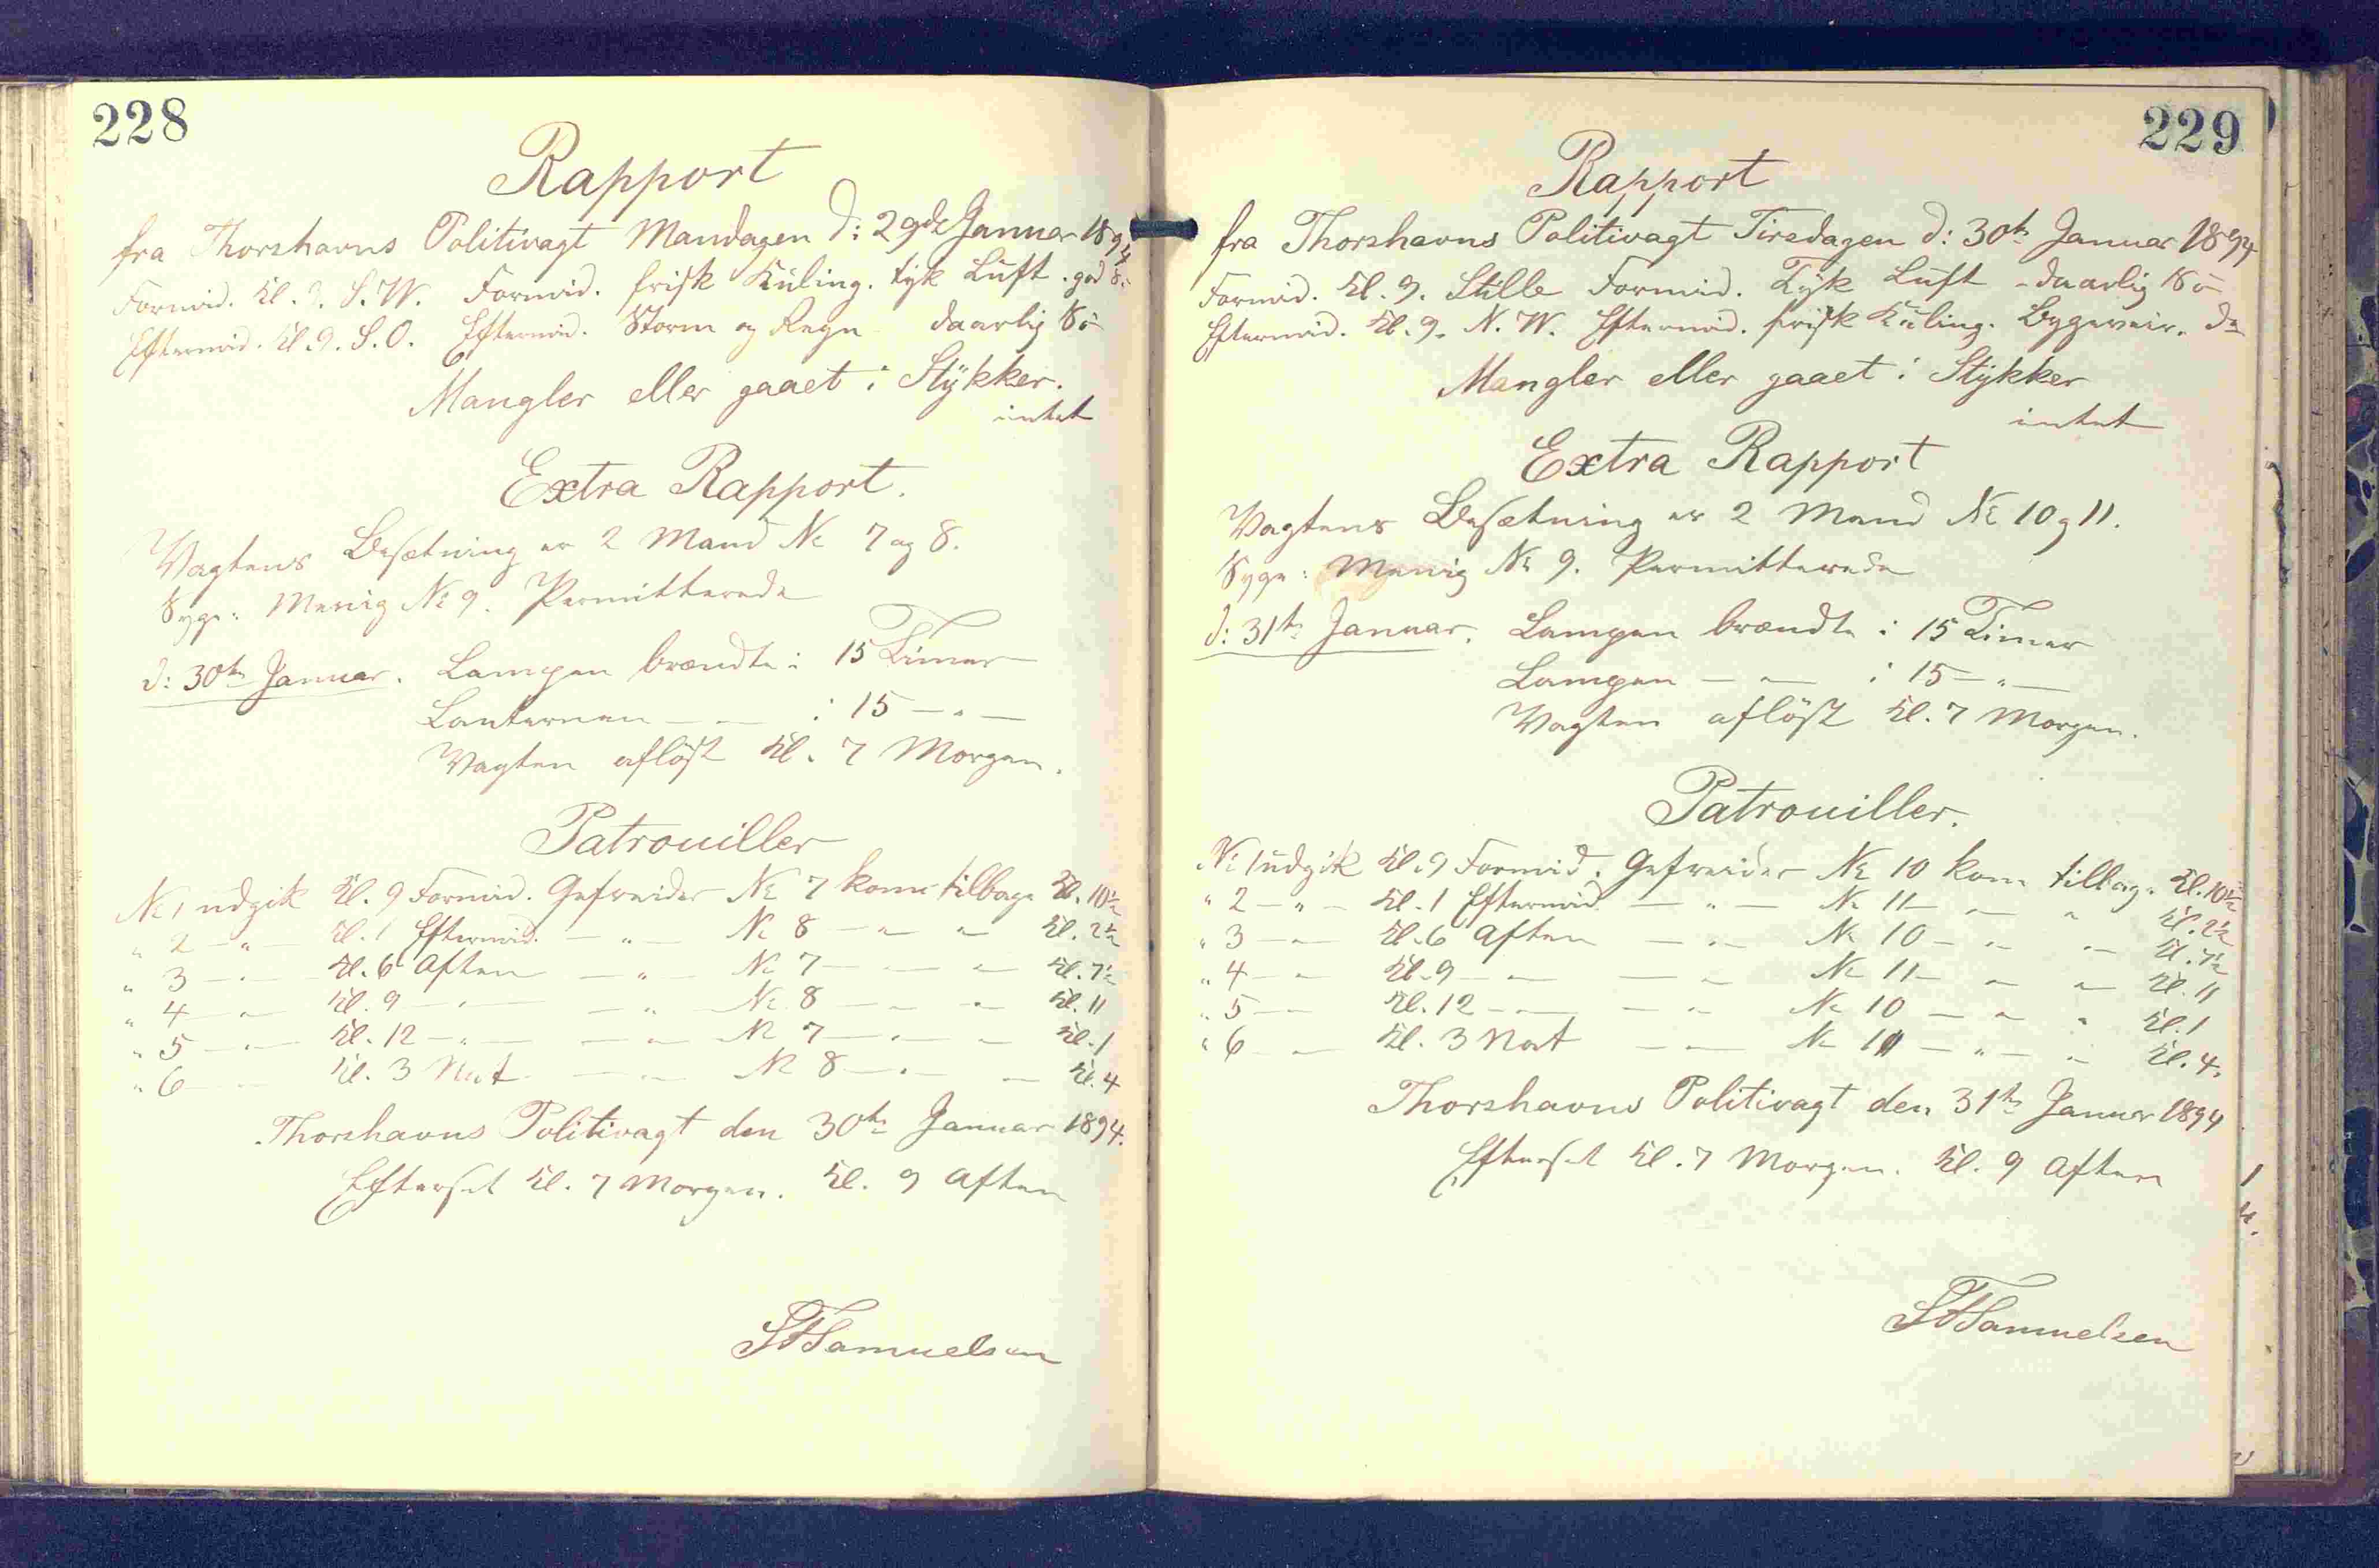 228
Rapport
fra Thorshavns Politivagt Mandagen d: 29de Januar 1894
Formid. Kl. 9. S.W. Formid. frisk Küling. tÿk Lüft. god Sö
Eftermid. Kl. 9. S.O. Eftermid. Storm og Regn daarlig Sö
Mangler eller gaaet i Stÿkker.
intet
Extra Rapport.
Vagtens Besætning er 2 Mand No 7 og 8.
Syge: Menig No 9. Permitterede
d: 30te Januar. Lampen brændte i 15 Timer
Lanternen — — i 15 — " —
Vagten aflöst Kl. 7 Morgen.
Patrouiller
No 1 udgik Kl. 9 Formid. Gefreider No 7 kom tilbage Kl. 10½
" 2 — " — Kl. 1 Eftermid. — " — No 8 — " — " Kl. 2½
" 3 — " — Kl. 6 Aften — " — No 7 — " — " Kl. 7½
" 4 — " — Kl. 9 — " — — " — No 8 — " — " Kl. 11
" 5 — " — Kl. 12 — " — — " — No 7 — " — " Kl. 1
" 6 — " — Kl. 3 Nat — " — No 8 — " — " Kl. 4
Thorshavns Politivagt den 30te Januar 1894.
Efterset Kl. 7 Morgen. Kl. 9 Aften
Samuelsen
229
Rapport
fra Thorshavns Politivagt Tirsdagen d: 30te Januar 1894
Formid. Kl. 9. Stille Formid. Tÿk Lüft - daarlig Sö
Eftermid. Kl. 9. N.W. Eftermid. frisk Küling. Bygeveir. do
Mangler eller gaaet i Stÿkker
intet
Extra Rapport
Vagtens Besætning er 2 Mand No 10 g 11.
Syge: Menig No 9. Permitterede
d: 31te Januar. Lampen brændte i 15 Timer
Lampen — — i 15 — " —
Vagten aflöst Kl. 7 Morgen.
Patrouiller.
No 1 udgik Kl. 9 Formid. Gefreider No 10 kom tilbage Kl. 10½
" 2 — " — Kl. 1 Eftermid. — " — No 11 — " — " Kl. 2½
" 3 — " — Kl. 6 Aften — " — No 10 — " — " Kl. 7½
" 4 — " — Kl. 9 — " — — " — No 11 — " — " Kl. 11
" 5 — " — Kl. 12 — " — — " — No 10 — " — " Kl. 1
" 6 — " — Kl. 3 Nat — " — No 11 — " — " Kl. 4.
Thorshavns Politivagt den 31te Januar 1894
Efterset Kl. 7 Morgen. Kl. 9 Aften
Samuelsen